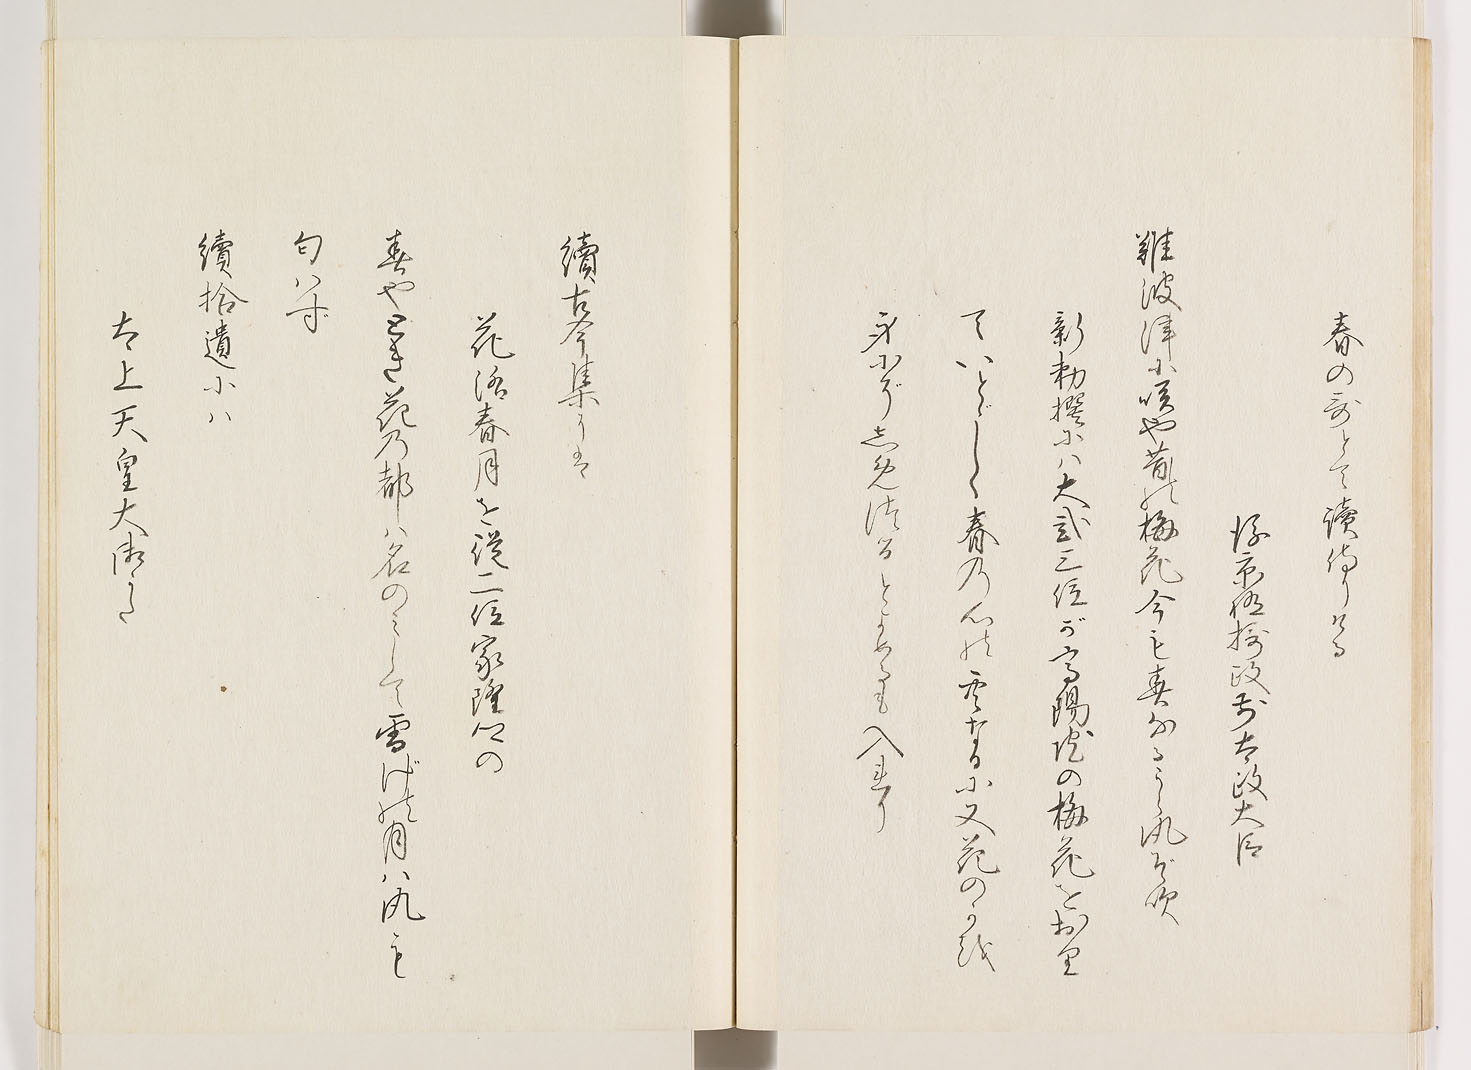 春の哥とて讀侍りける
後京極摂政前太政大臣
難波津に咲や昔の梅花今も春なるうら風ぞ吹
新勅撰にハ大貳三位が高陽院の梅花をおり
ていとゞしく春の心の空なるに又花のかを
身にぞしめつるとよめるも入たり
續古今集には
花洛春月を従二位家隆卿の
春やとき花乃都ハ名のミして雪げの月ハ風も
匂ハず
續拾遺にハ
太上天皇大御うた